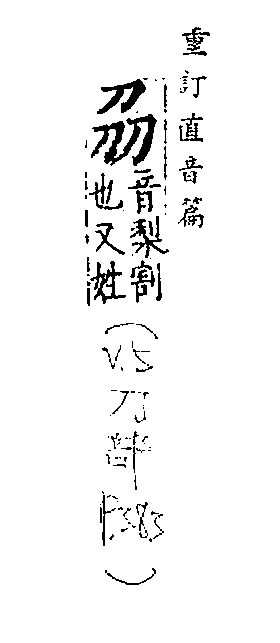 重訂直音篇
刕音梨割
也又姓
(V.5刀部P.383)